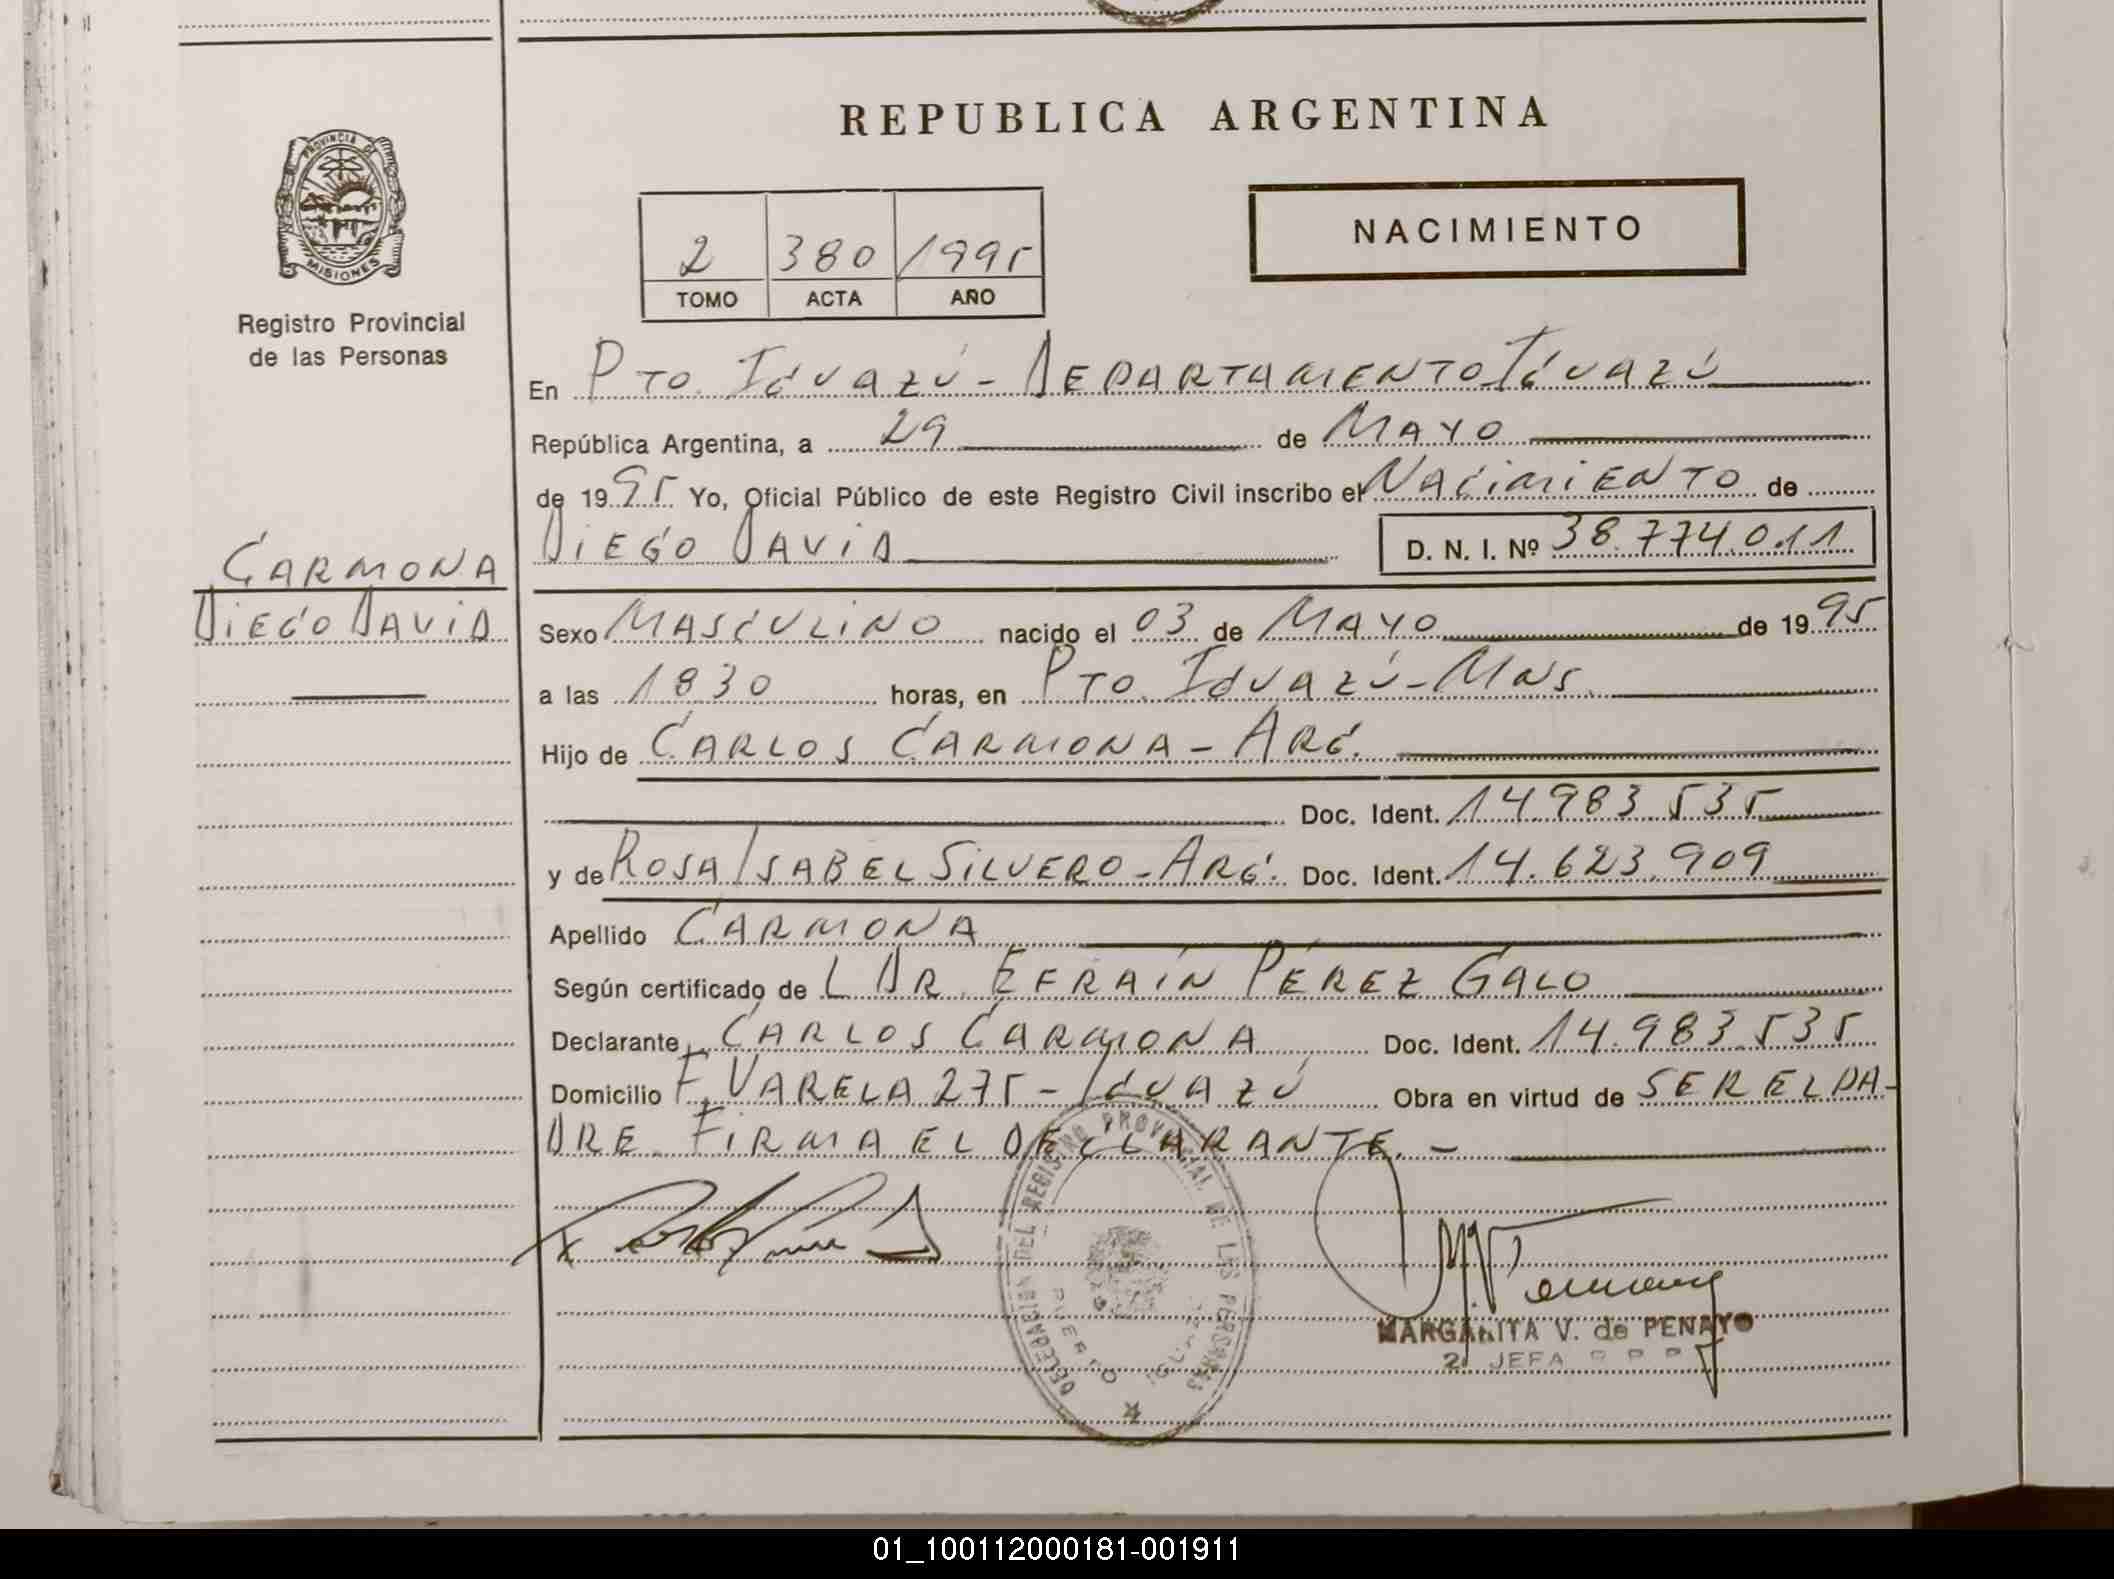 REPUBLICA ARGENTINA
PROVINCIA DE
MISIONES
Registro Provincial
de las Personas
NACIMIENTO
2 380 1995
TOMO ACTA AÑO
En PTO. IGUAZÚ - DEPARTAMENTO IGUAZÚ
República Argentina, a 29 de MAYO
de 1995 Yo, Oficial Público de este Registro Civil inscribo el NACIMIENTO de
DIEGO DAVID D. N. I. Nº 38.774.011
CARMONA
DIEGO DAVID
Sexo MASCULINO nacido el 03 de MAYO de 1995
a las 1830 horas, en PTO. IGUAZÚ - MNS.
Hijo de CARLOS CARMONA - ARG.
Doc. Ident. 14.983.535
y de ROSA ISABEL SILVERO - ARG. Doc. Ident. 14.623.909
Apellido CARMONA
Según certificado de L DR. EFRAÍN PÉREZ GALO
Declarante CARLOS CARMONA Doc. Ident. 14.983.535
Domicilio F. VARELA 275 - IGUAZÚ Obra en virtud de SER EL PA-
DRE. FIRMA EL DECLARANTE. -
DELEGACION DEL REGISTRO PROVINCIAL DE LAS PERSONAS
PUERTO IGUAZU
MARGARITA V. de PENAYO
2º JEFA R P P
01_100112000181-001911